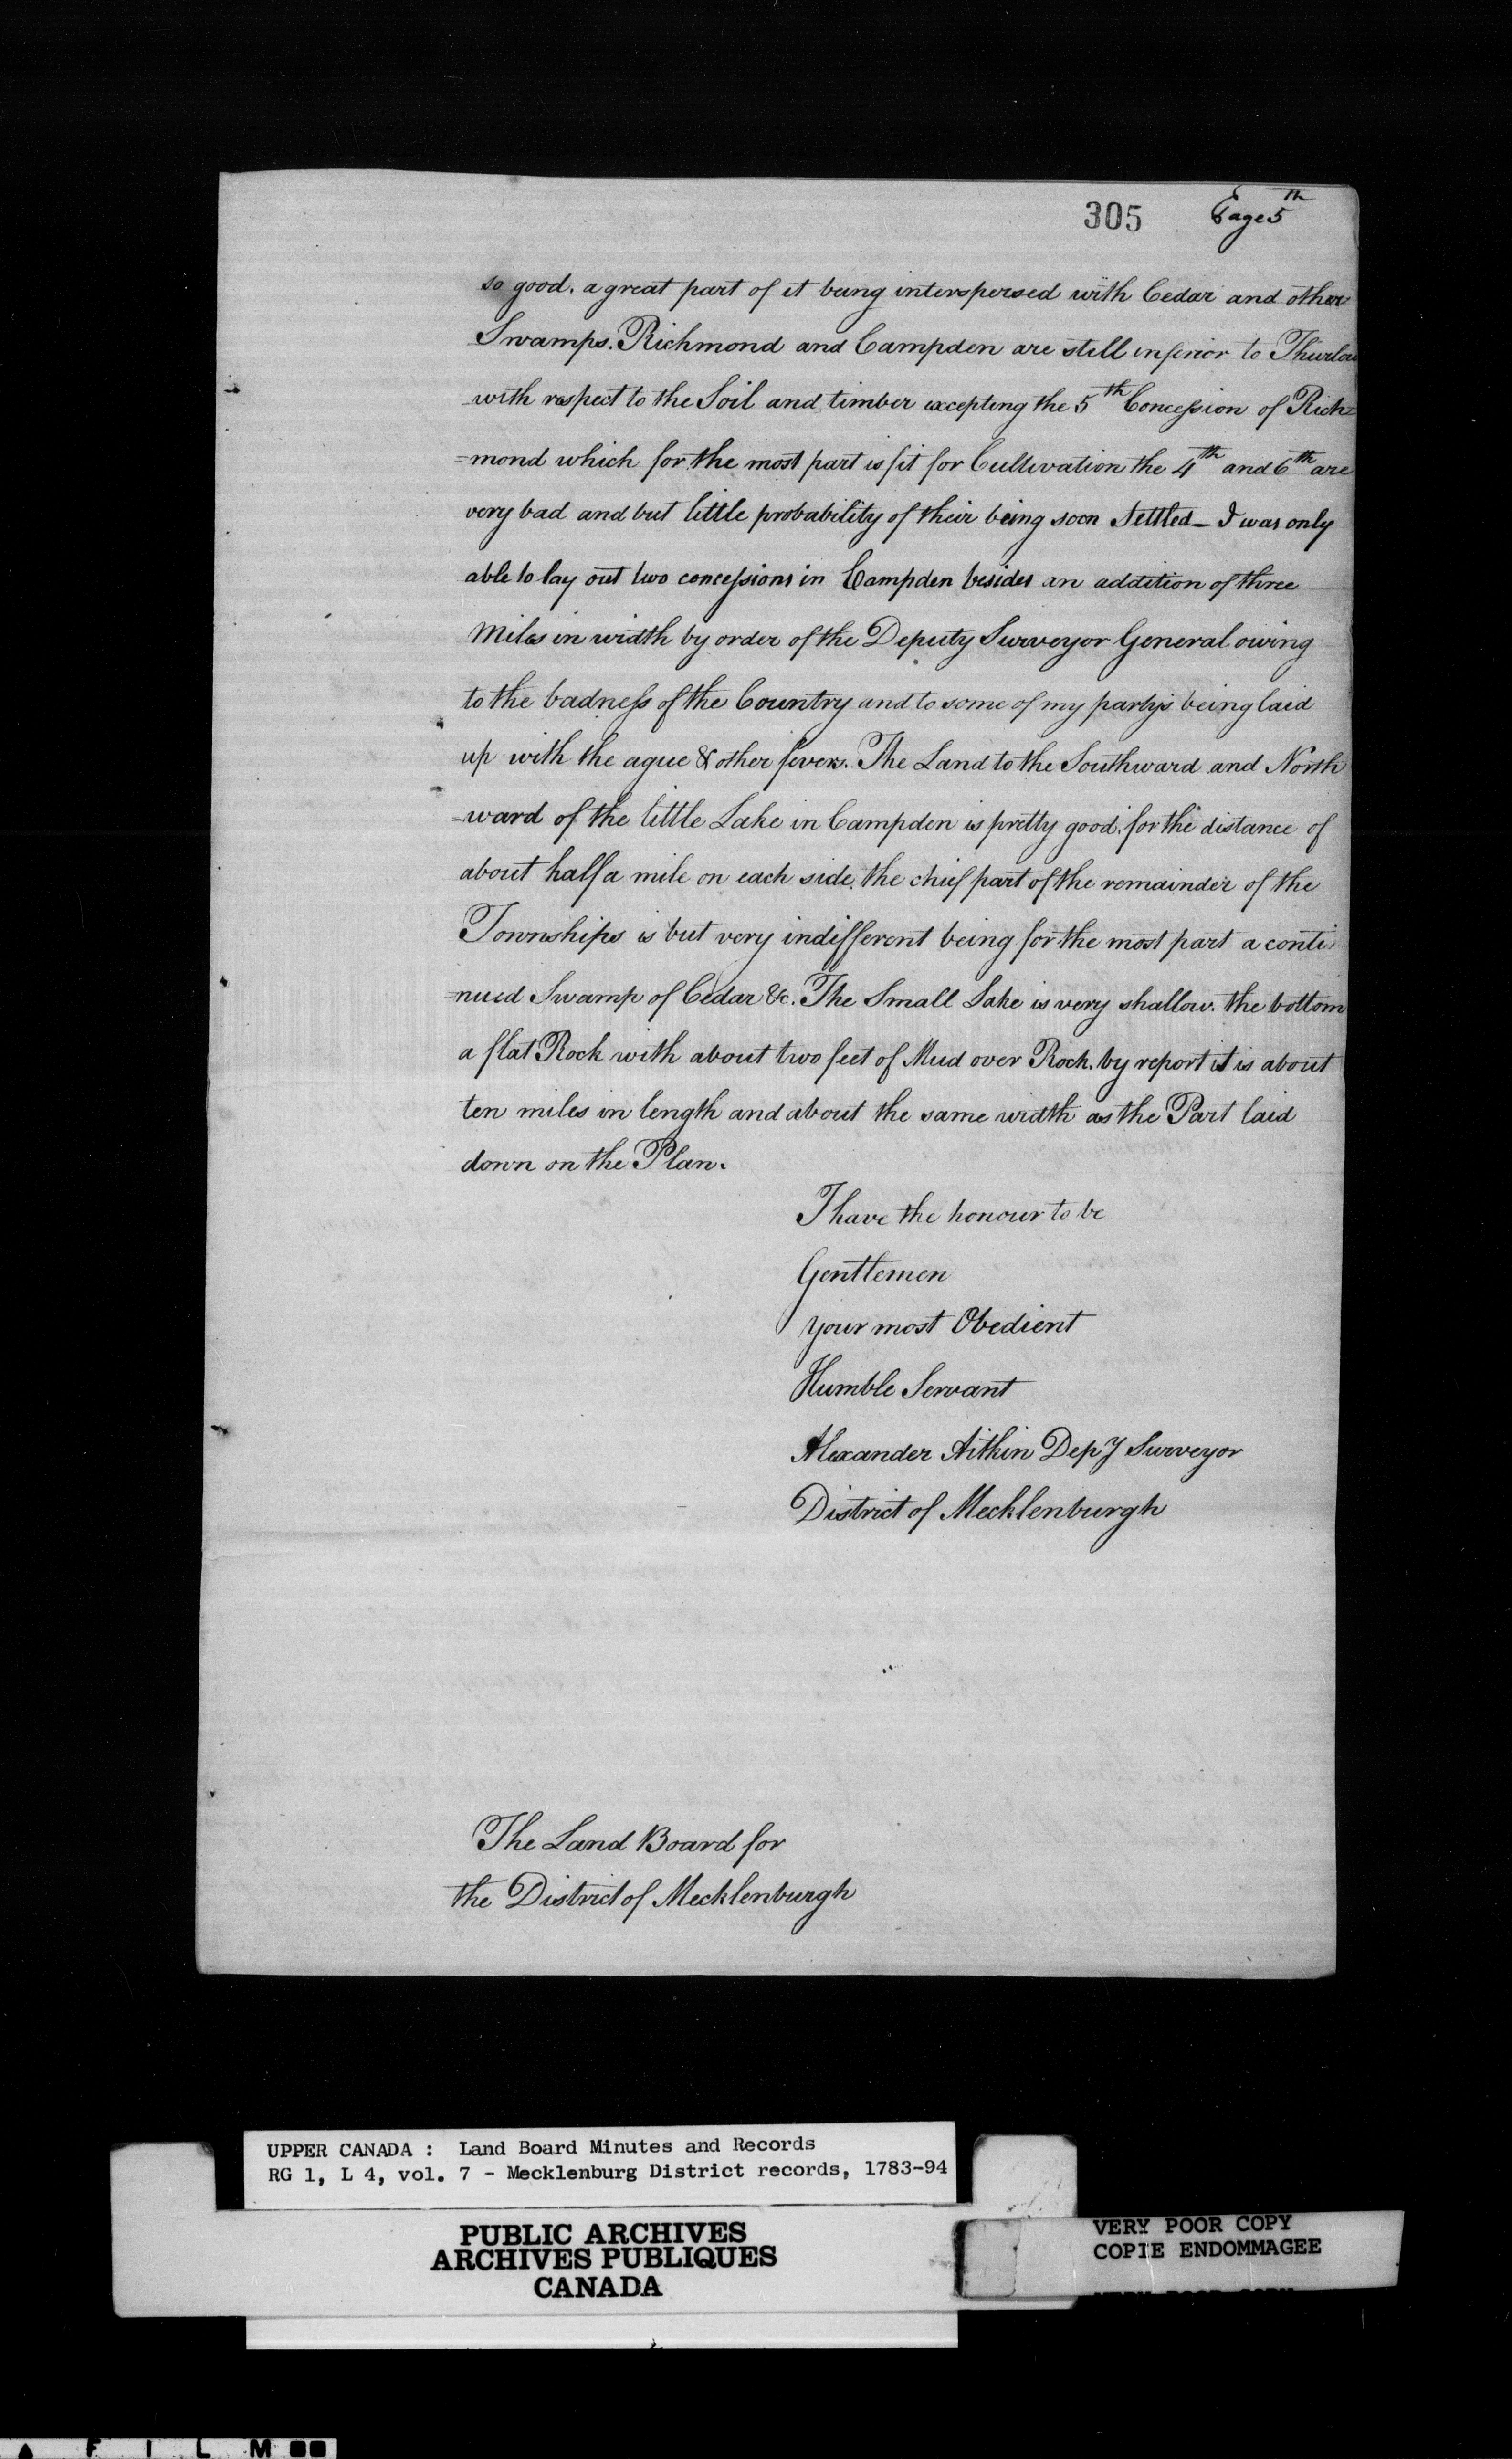 305 Page 5th
so good. a great part of it being interspersed with Cedar and other
Swamps. Richmond and Campden are still inferior to Thurlow
with respect to the Soil and timber excepting the 5th Concession of Rich=
=mond which for the most part is fit for Cultivation the 4th and 6th are
very bad and but little probability of their being soon Settled_ I was only
able to lay out two concessions in Campden besides an addition of three
Miles in width by order of the Deputy Surveyor General owing
to the badness of the Country and to some of my partys being laid
up with the ague & other fevers. The Land to the Southward and North
=ward of the little Lake in Campden is pretty good. for the distance of
about half a mile on each side. the chief part of the remainder of the
Townships is but very indifferent being for the most part a conti
=nued Swamp of Cedar &c. The Small Lake is very shallow. the bottom
a flat Rock with about two feet of Mud over Rock. by report it is about
ten miles in length and about the same width as the Part laid
down on the Plan.
I have the honour to be
Gentlemen
your most Obedient
Humble Servant
Alexander Aitkin Depy Surveyor
District of Mecklenburgh
The Land Board for
the District of Mecklenburgh
UPPER CANADA : Land Board Minutes and Records
RG 1, L 4, vol. 7 - Mecklenburg District records, 1783-94
PUBLIC ARCHIVES
ARCHIVES PUBLIQUES
CANADA
VERY POOR COPY
COPIE ENDOMMAGEE
FILM